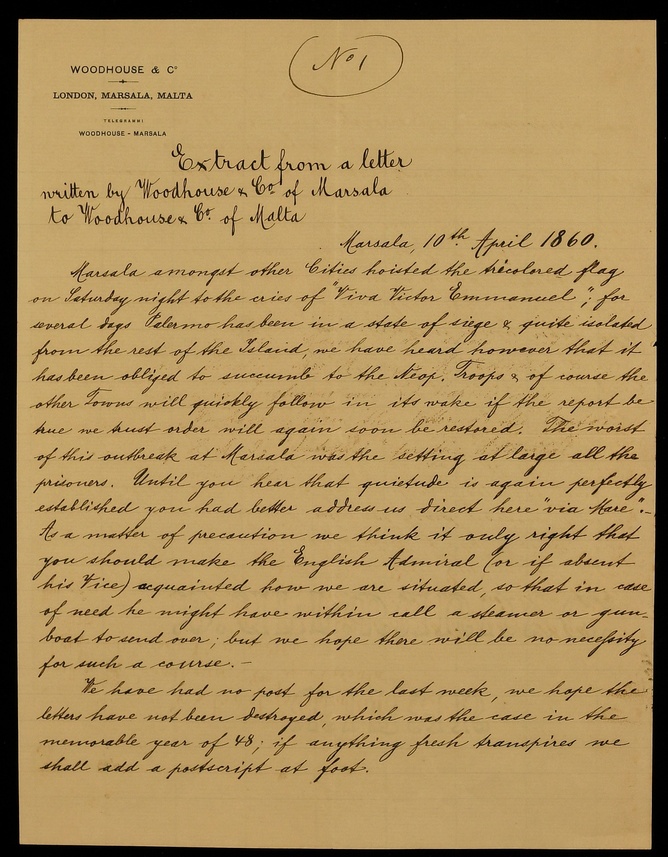 No 1
WOODHOUSE & Co
LONDON, MARSALA, MALTA
TELEGRAMMI
WOODHOUSE - MARSALA
Extract from a letter
written by Woodhouse & Co. of Marsala
to Woodhouse & Co. of Malta
Marsala, 10th April 1860.
Marsala amongst other Cities hoisted the tricolored flag
on Saturday night to the cries of "Viva Victor Emmanuel"; for
several days Palermo has been in a state of siege & quite isolated
from the rest of the Island, we have heard however that it
has been obliged to succumb to the Neap. Troops & of course the
other Towns will quickly follow in its wake if the report be
true we trust order will again soon be restored. The worst
of this outbreak at Marsala was the setting at large all the
prisoners. Until you hear that quietude is again perfectly
established you had better address us direct here "via Mare".-
As a matter of precaution we think it only right that
you should make the English Admiral (or if absent
his Vice) acquainted how we are situated, so that in case
of need he might have within call a steamer or gun-
boat to send over; but we hope there will be no necessity
for such a course.-
We have had no post for the last week, we hope the
letters have not been destroyed, which was the case in the
memorable year of 48; if anything fresh transpires we
shall add a postscript at foot.